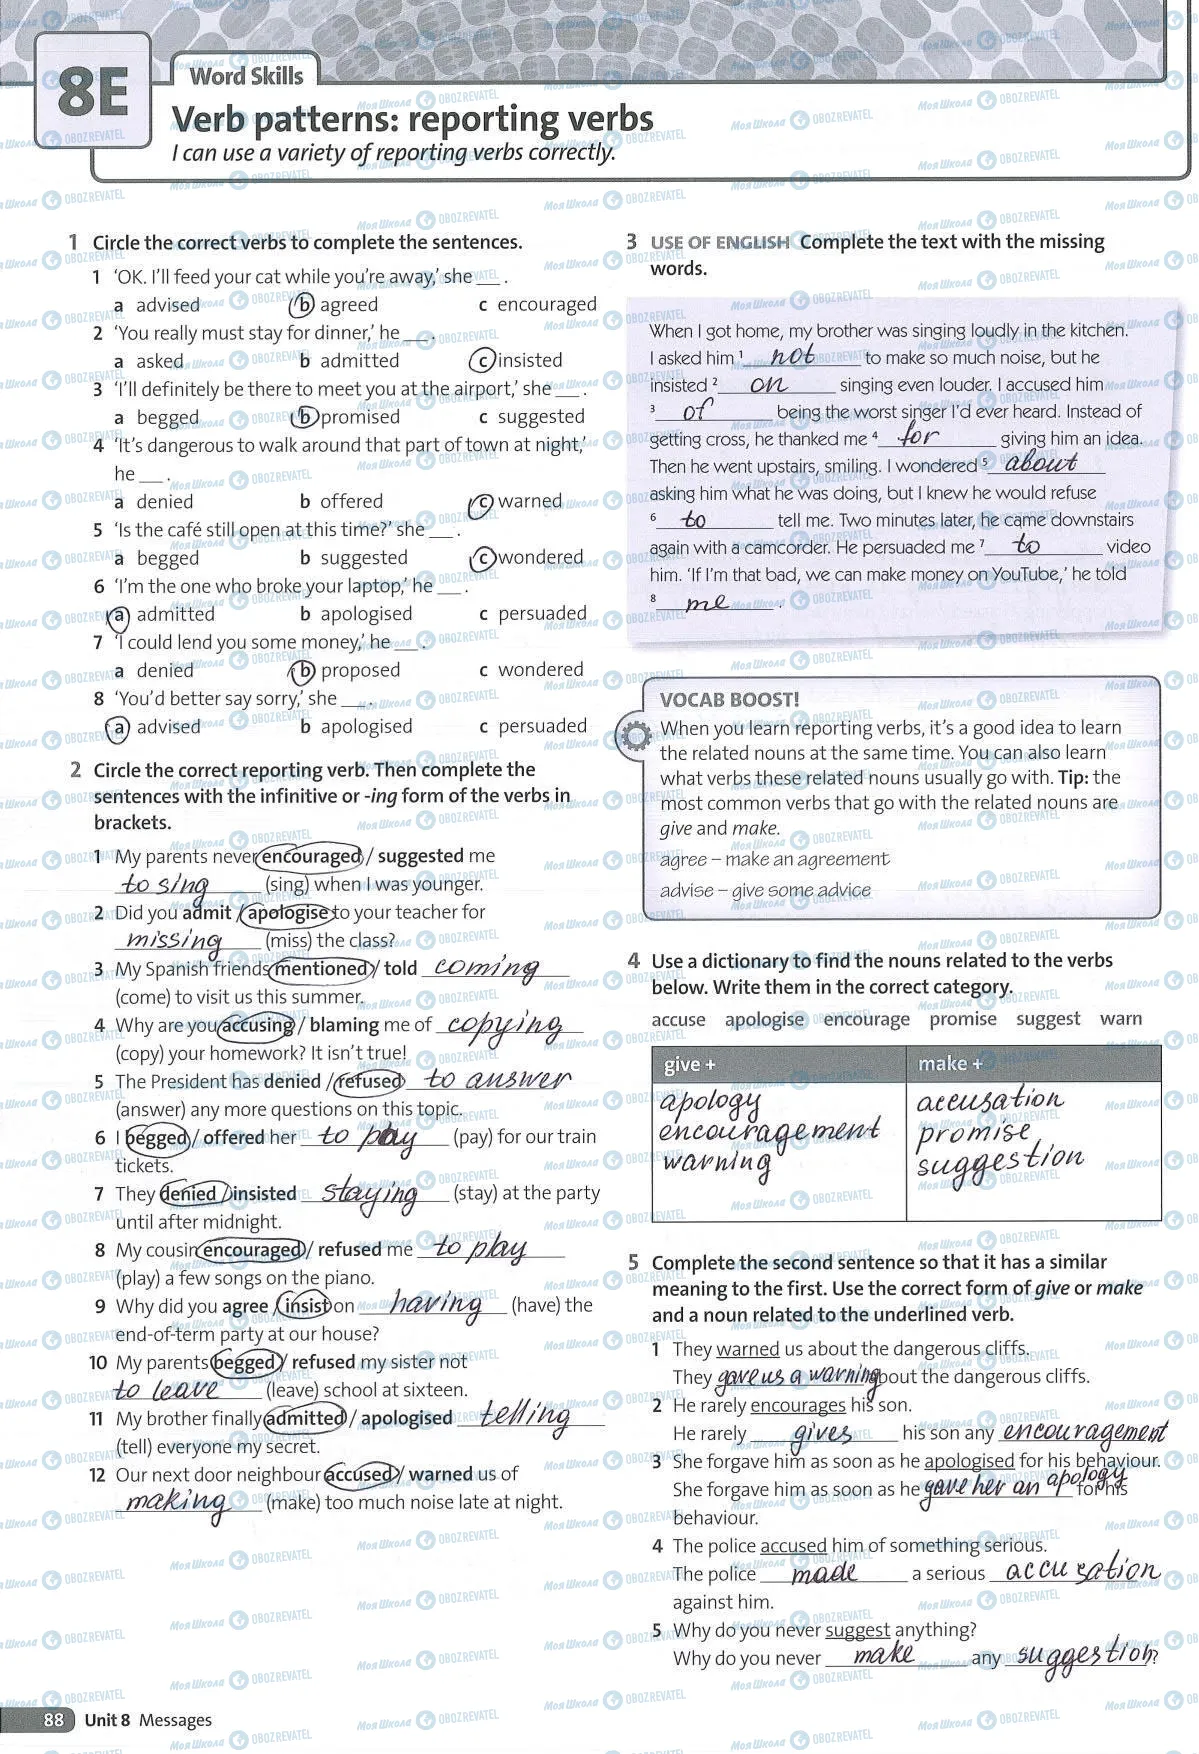 8E
Word Skills
Verb patterns: reporting verbs
I can use a variety of reporting verbs correctly.
1 Circle the correct verbs to complete the sentences.
1 'OK. I'll feed your cat while you're away,' she ___ .
a advised b agreed c encouraged
2 'You really must stay for dinner,' he ___ .
a asked b admitted c insisted
3 'I'll definitely be there to meet you at the airport,' she ___ .
a begged b promised c suggested
4 'It's dangerous to walk around that part of town at night,'
he ___ .
a denied b offered c warned
5 'Is the café still open at this time?' she ___ .
a begged b suggested c wondered
6 'I'm the one who broke your laptop,' he ___ .
a admitted b apologised c persuaded
7 'I could lend you some money,' he ___ .
a denied b proposed c wondered
8 'You'd better say sorry,' she ___ .
a advised b apologised c persuaded
2 Circle the correct reporting verb. Then complete the
sentences with the infinitive or -ing form of the verbs in
brackets.
1 My parents never encouraged / suggested me
to sing (sing) when I was younger.
2 Did you admit / apologise to your teacher for
missing (miss) the class?
3 My Spanish friends mentioned / told coming
(come) to visit us this summer.
4 Why are you accusing / blaming me of copying
(copy) your homework? It isn't true!
5 The President has denied / refused to answer
(answer) any more questions on this topic.
6 I begged / offered her to pay (pay) for our train
tickets.
7 They denied / insisted staying (stay) at the party
until after midnight.
8 My cousin encouraged / refused me to play
(play) a few songs on the piano.
9 Why did you agree / insist on having (have) the
end-of-term party at our house?
10 My parents begged / refused my sister not
to leave (leave) school at sixteen.
11 My brother finally admitted / apologised telling
(tell) everyone my secret.
12 Our next door neighbour accused / warned us of
making (make) too much noise late at night.
3 USE OF ENGLISH Complete the text with the missing
words.
When I got home, my brother was singing loudly in the kitchen.
I asked him 1 not to make so much noise, but he
insisted 2 on singing even louder. I accused him
3 of being the worst singer I'd ever heard. Instead of
getting cross, he thanked me 4 for giving him an idea.
Then he went upstairs, smiling. I wondered 5 about
asking him what he was doing, but I knew he would refuse
6 to tell me. Two minutes later, he came downstairs
again with a camcorder. He persuaded me 7 to video
him. 'If I'm that bad, we can make money on YouTube,' he told
8 me .
VOCAB BOOST!
When you learn reporting verbs, it's a good idea to learn
the related nouns at the same time. You can also learn
what verbs these related nouns usually go with. Tip: the
most common verbs that go with the related nouns are
give and make.
agree – make an agreement
advise – give some advice
4 Use a dictionary to find the nouns related to the verbs
below. Write them in the correct category.
accuse apologise encourage promise suggest warn
give + make +
apology accusation
encouragement promise
warning suggestion
5 Complete the second sentence so that it has a similar
meaning to the first. Use the correct form of give or make
and a noun related to the underlined verb.
1 They warned us about the dangerous cliffs.
They gave us a warning about the dangerous cliffs.
2 He rarely encourages his son.
He rarely gives his son any encouragement
3 She forgave him as soon as he apologised for his behaviour.
She forgave him as soon as he gave her an apology for his
behaviour.
4 The police accused him of something serious.
The police made a serious accusation
against him.
5 Why do you never suggest anything?
Why do you never make any suggestion?
88 Unit 8 Messages
Моя Школа OBOZREVATEL